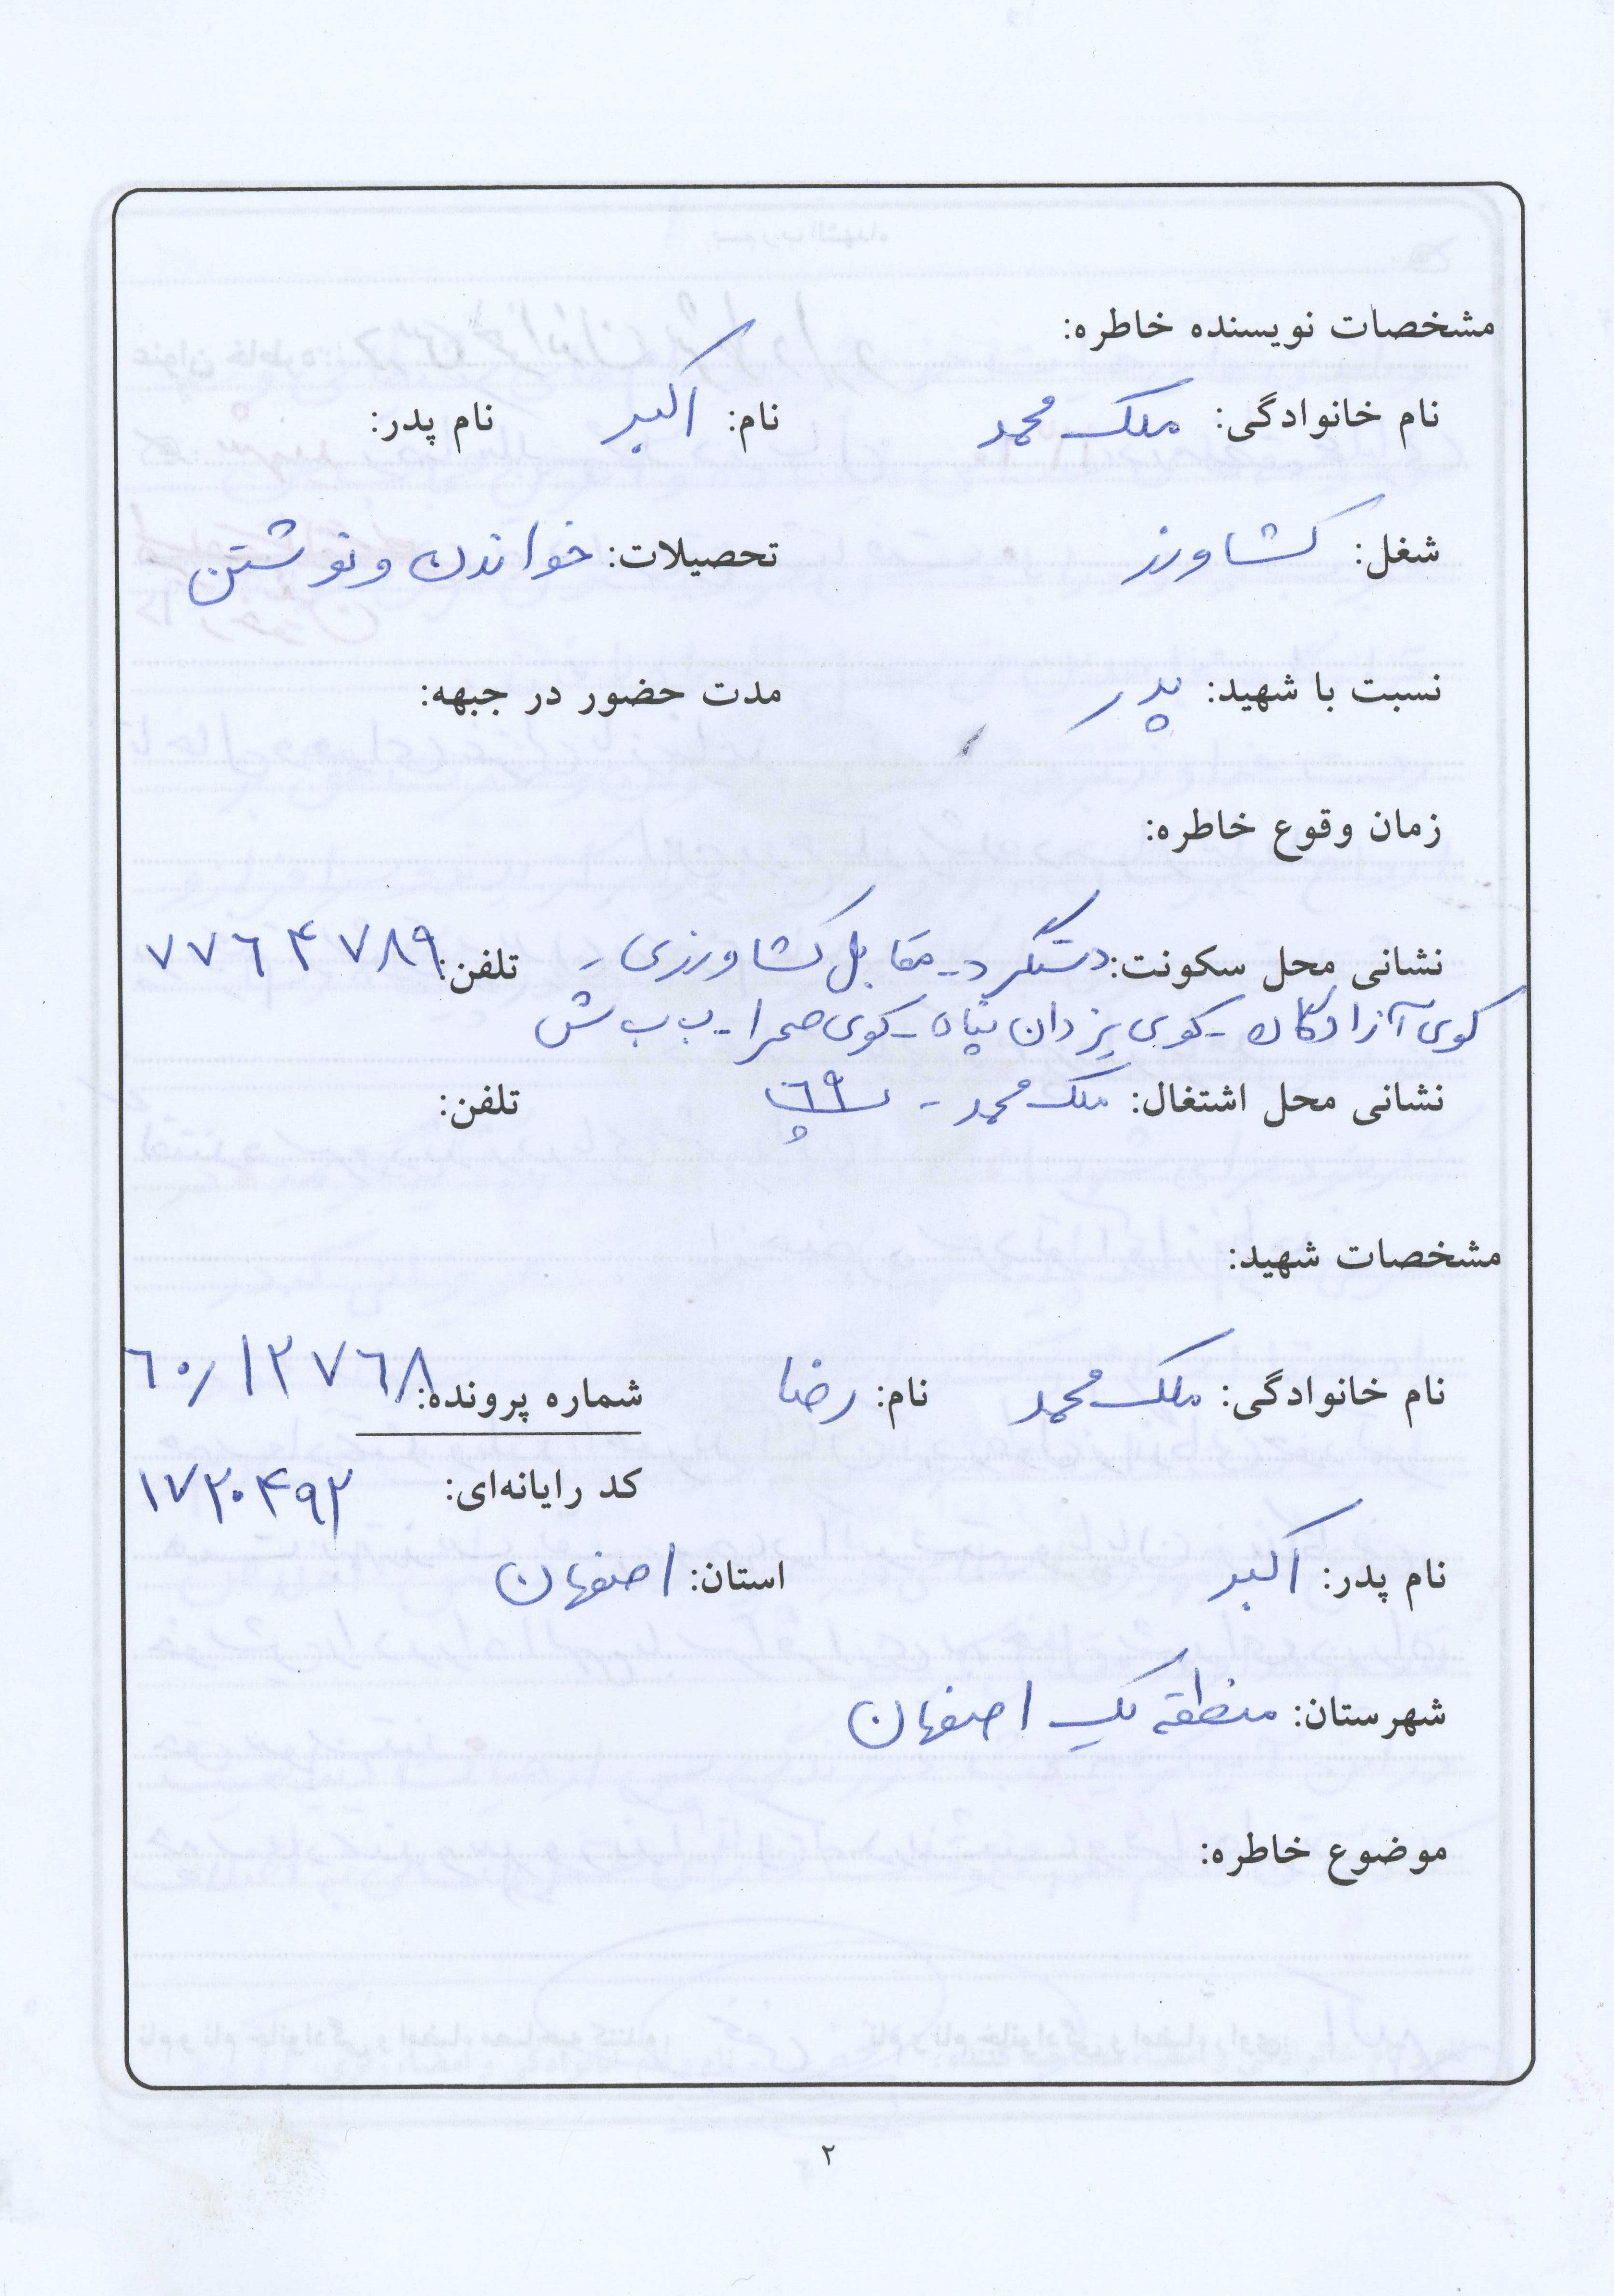 مشخصات نویسنده خاطره:
نام خانوادگی: ملک محمد نام: اکبر نام پدر:
شغل: کشاورز تحصیلات: خواندن و نوشتن
نسبت با شهید: پدر مدت حضور در جبهه:
زمان وقوع خاطره:
نشانی محل سکونت: دستگرد - مقابل کشاورزی - تلفن: ۷۷۶۴۷۸۹
کوی آزادگان - کوی یزدان پناه - کوی صحرا - ب ب ش
نشانی محل اشتغال: ملک محمد - پ ۶۹ تلفن:
مشخصات شهید:
نام خانوادگی: ملک محمد نام: رضا شماره پرونده: ۶۰/۱۲۷۶۸
کد رایانه‌ای: ۱۷۲۰۴۹۲
نام پدر: اکبر استان: اصفهان
شهرستان: منطقه یک اصفهان
موضوع خاطره:
۲